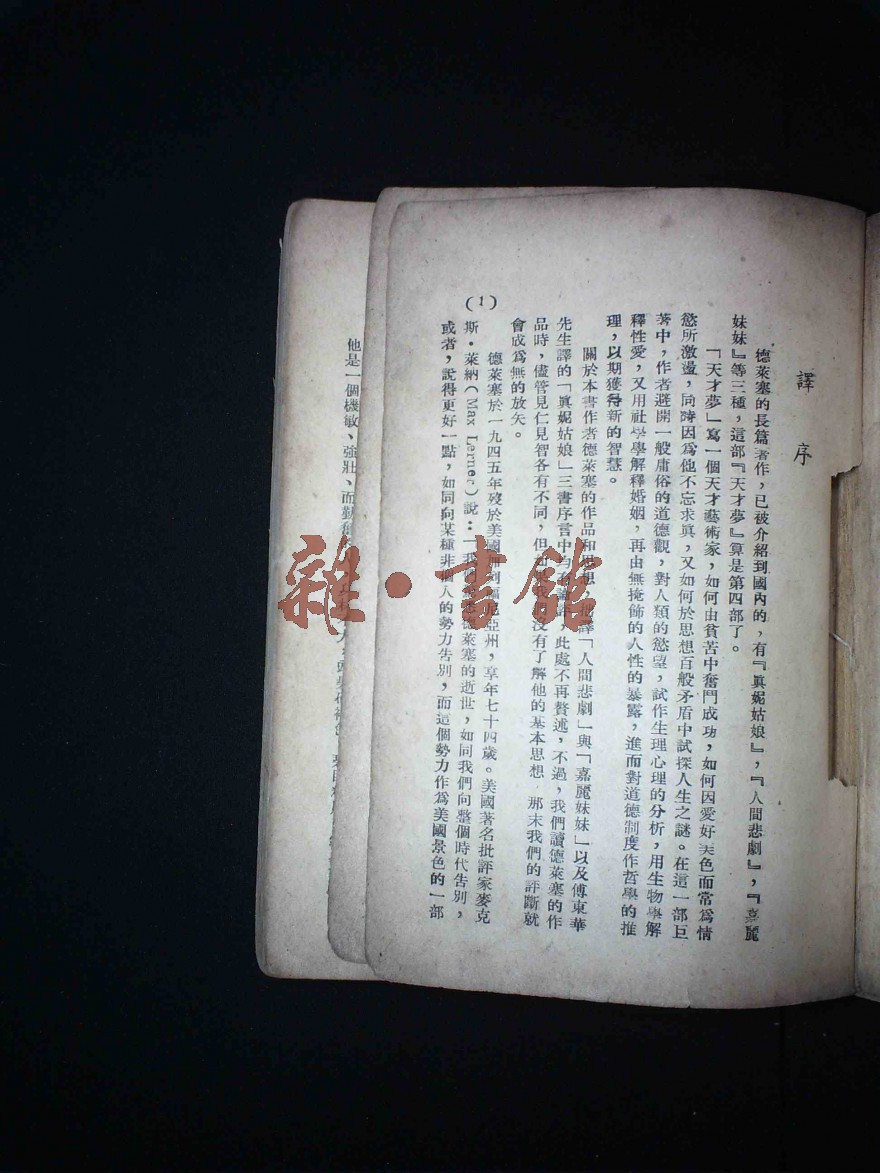 譯序
德萊塞的長篇著作，已被介紹到國內的，有『眞妮姑娘』，『人間悲劇』，『嘉麗
妹妹』等三種，這部『天才夢』算是第四部了。
「天才夢」寫一個天才藝術家，如何由貧苦中奮鬥成功，如何因愛好美色而常爲情
慾所激盪，同時因爲他不忘求眞，又如何於思想百般矛盾中試探人生之謎。在這一部巨
著中，作者避開一般庸俗的道德觀，對人類的慾望，試作生理心理的分析，用生物學解
釋性愛，又用社學學解釋婚姻，再由無掩飾的人性的暴露，進而對道德制度作哲學的推
理，以期獲得新的智慧。
關於本書作者德萊塞的作品和思想，拙譯「人間悲劇」與「嘉麗妹妹」以及傅東華
先生譯的「眞妮姑娘」三書序言中均有論評，此處不再贅述，不過，我們讀德萊塞的作
品時，儘管見仁見智各有不同，但如果我們沒有了解他的基本思想 那末我們的評斷就
會成爲無的放矢。
德萊塞於一九四五年歿於美國加利福尼亞州，享年七十四歲。美國著名批評家麥克
斯·萊納（Max Lerner）說：「我們對德萊塞的逝世，如同我們向整個時代告別，
或者，說得更好一點，如同向某種非個人的勢力告別，而這個勢力作爲美國景色的一部
(1)
他是一個機敏、強壯、而勤
雜·書館